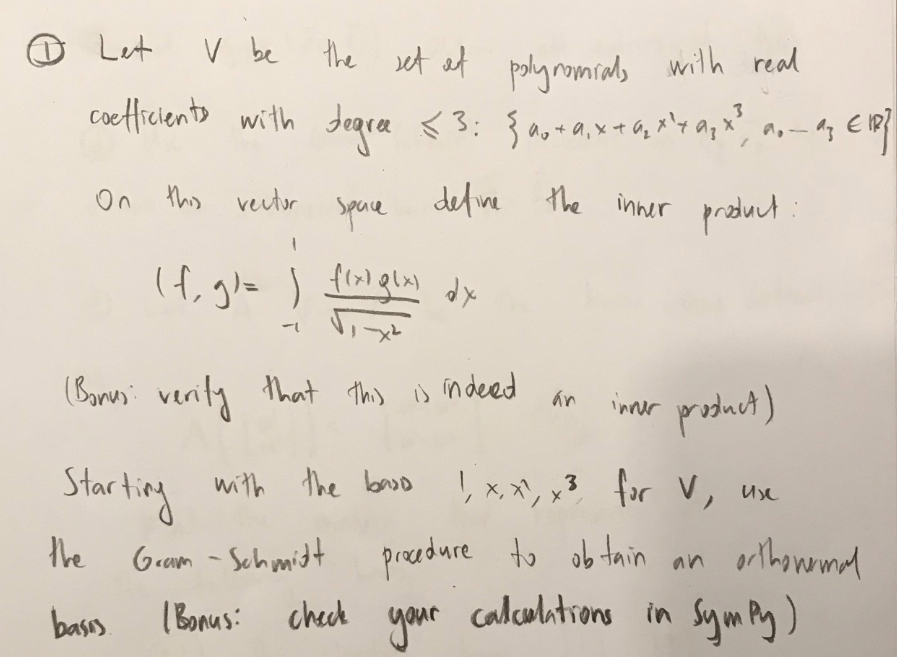 ① Let V be the set of polynomials with real
coefficients with degree ≤ 3: {a₀ + a₁x + a₂x² + a₃x³, a₀ — a₃ ∈ ℝ}
On this vector space define the inner product:
(f, g) = ∫₋₁¹ f(x) g(x) / √(1-x²) dx
(Bonus: verify that this is indeed an inner product)
Starting with the basis 1, x, x², x³ for V, use
the Gram-Schmidt procedure to obtain an orthonormal
basis. (Bonus: check your calculations in SymPy)